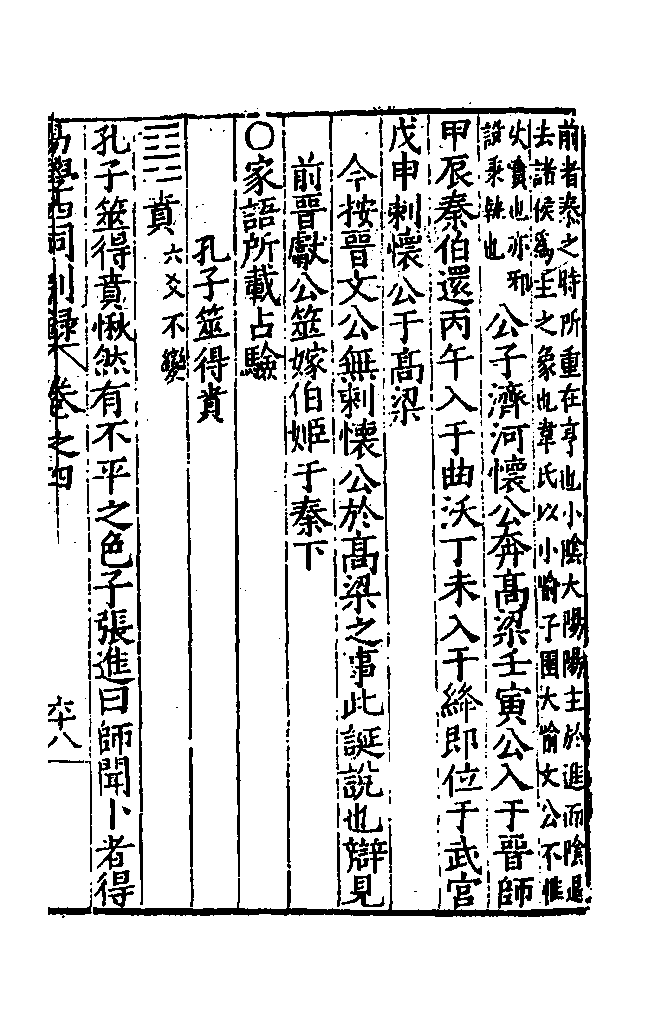 前者泰之時所重在亨也小陰大陽陽主於進而陰退
去諸侯爲主之象也韋氏以小喻子圉大喻文公不惟
火賁也亦邪
設秉銖也
公子濟河懷公奔高梁壬寅公入于晉師
甲辰秦伯還丙午入于曲沃丁未入于絳即位于武宮
戊申刺懷公于高梁
今按晉文公無刺懷公於高梁之事此誕說也辯見
前晉獻公筮嫁伯姬于秦下
○家語所載占驗
孔子筮得賁
賁 六爻不變
孔子筮得賁愀然有不平之色子張進曰師聞卜者得
易學四同別錄 卷之四 六十八